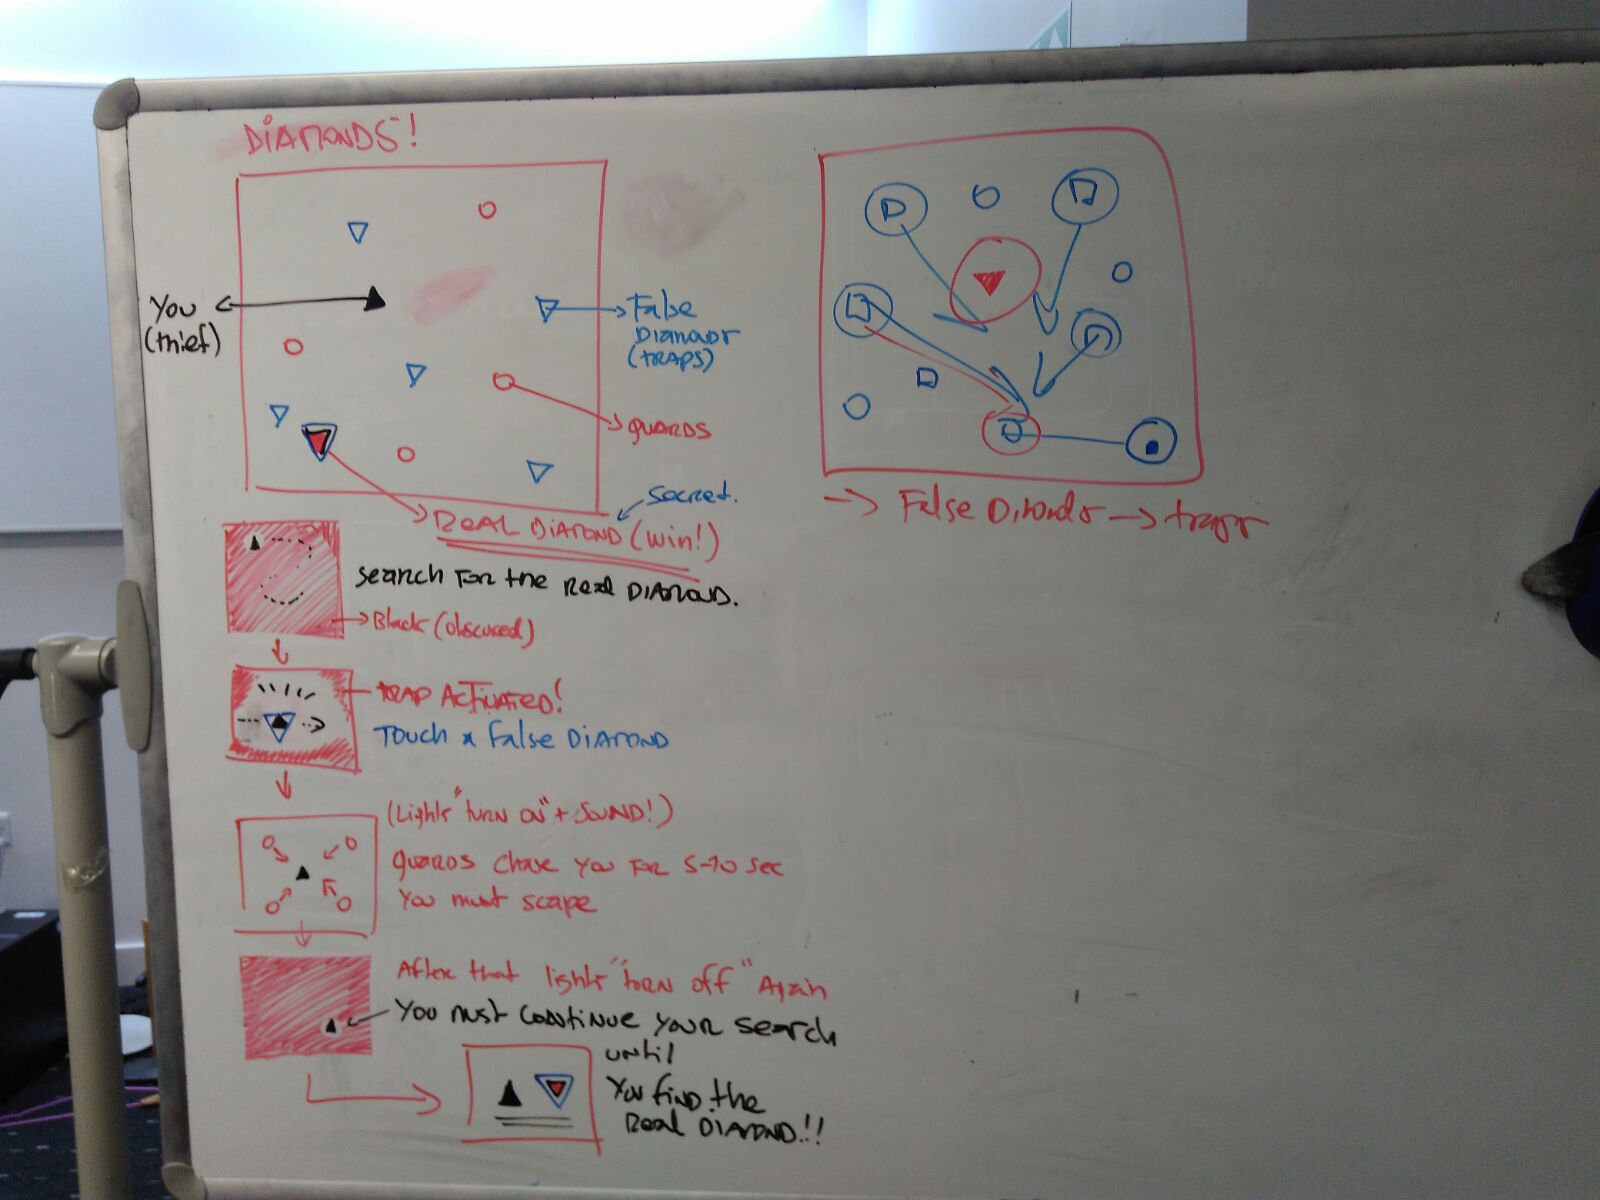 DIAMONDS!
You
(thief)
False
DIAMONDS
(TRAPS)
GUARDS
Secret.
REAL DIAMOND (win!)
SEARCH FOR the Real DIAMOND.
Black (obscured)
TRAP ACTIVATED!
TOUCH a False DIAMOND
(Lights "turn on" + SOUND!)
guards chase you for 5-10 sec
You must scape
After that lights "turn off" Again
You must continue your search
until
You find the
Real DIAMOND!!
False